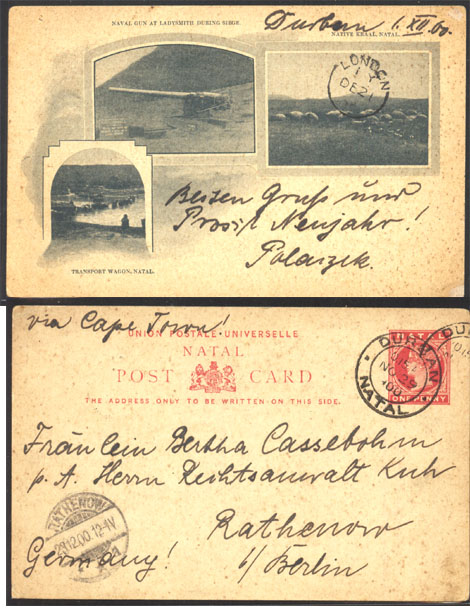 NAVAL GUN AT LADYSMITH DURING SIEGE.
Durban 1.XII.00.
NATIVE KRAAL, NATAL.
LONDON
1 Y
DE 21
Besten Gruß und
Prosit Neujahr!
Polaczek.
TRANSPORT WAGON, NATAL.
via Cape Town!
UNION POSTALE UNIVERSELLE
NATAL
POST CARD
THE ADDRESS ONLY TO BE WRITTEN ON THIS SIDE.
DURBAN
NATAL
ONE PENNY
Fräulein Bertha Cassebohm
p. A. Herrn Rechtsanwalt Kuh
RATHENOW
12.00.12-1V
Rathenow
Germany!
b/Berlin